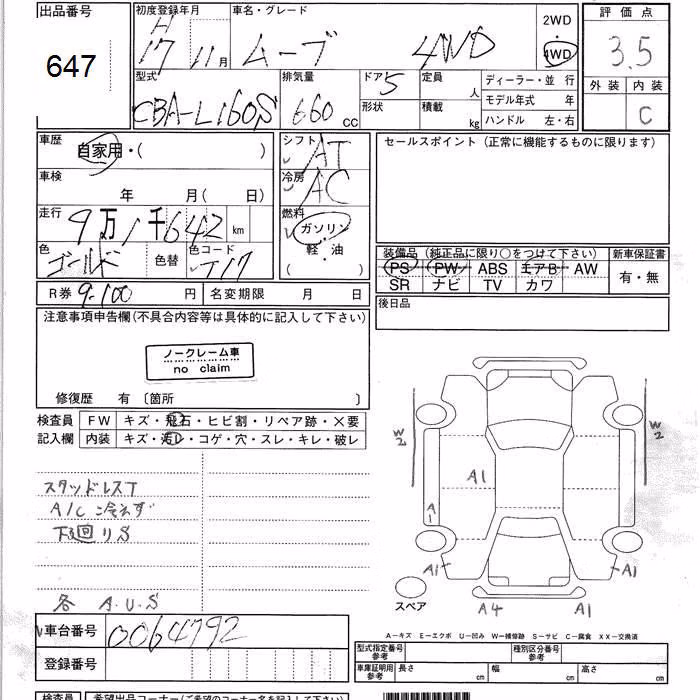 出品番号 初度登録年月 車名・グレード 2WD 評価点
647 H 17 11月 ムーブ 4WD 4WD 3.5
型式 排気量 ドア 5 定員 人 ディーラー・並 行 外装 内装
CBA-L160S 660 CC 形状 積載 kg モデル年式 年 C
ハンドル 左・右
車歴 自家用・( ) シフト AT セールスポイント (正常に機能するものに限ります)
車検 年 月(日) 冷房 AC
走行 9万1千642 km 燃料 ガソリン
色 ゴールド 色替 色コード T17 (軽・油) 装備品 (純正品に限り○をつけて下さい) 新車保証書
PS PW ABS エアB AW 有・無
SR ナビ TV カワ
R券 9-100 円 名変期限 月 日 後日品
注意事項申告欄(不具合内容等は具体的に記入して下さい)
ノークレーム車
no claim
修復歴 有 〔箇所 〕
検査員 FW キズ・飛石・ヒビ割・リペア跡・×要
記入欄 内装 キズ・汚レ・コゲ・穴・スレ・キレ・破レ
W2 W2
A1
スタッドレスT
A/C 冷えず A1
下回りS
A1 A1
各 A.U.S スペア A4 A1
車台番号 0064792
A-キズ E-エクボ U-凹み W-補修跡 S-サビ C-腐食 XX-交換済
登録番号 型式指定番号 参考 種別区分番号 参考
車庫証明用 参考 長さ cm 幅 cm 高さ cm
検査員 希望出品コーナー(ご希望のコーナー名を記入下さい)